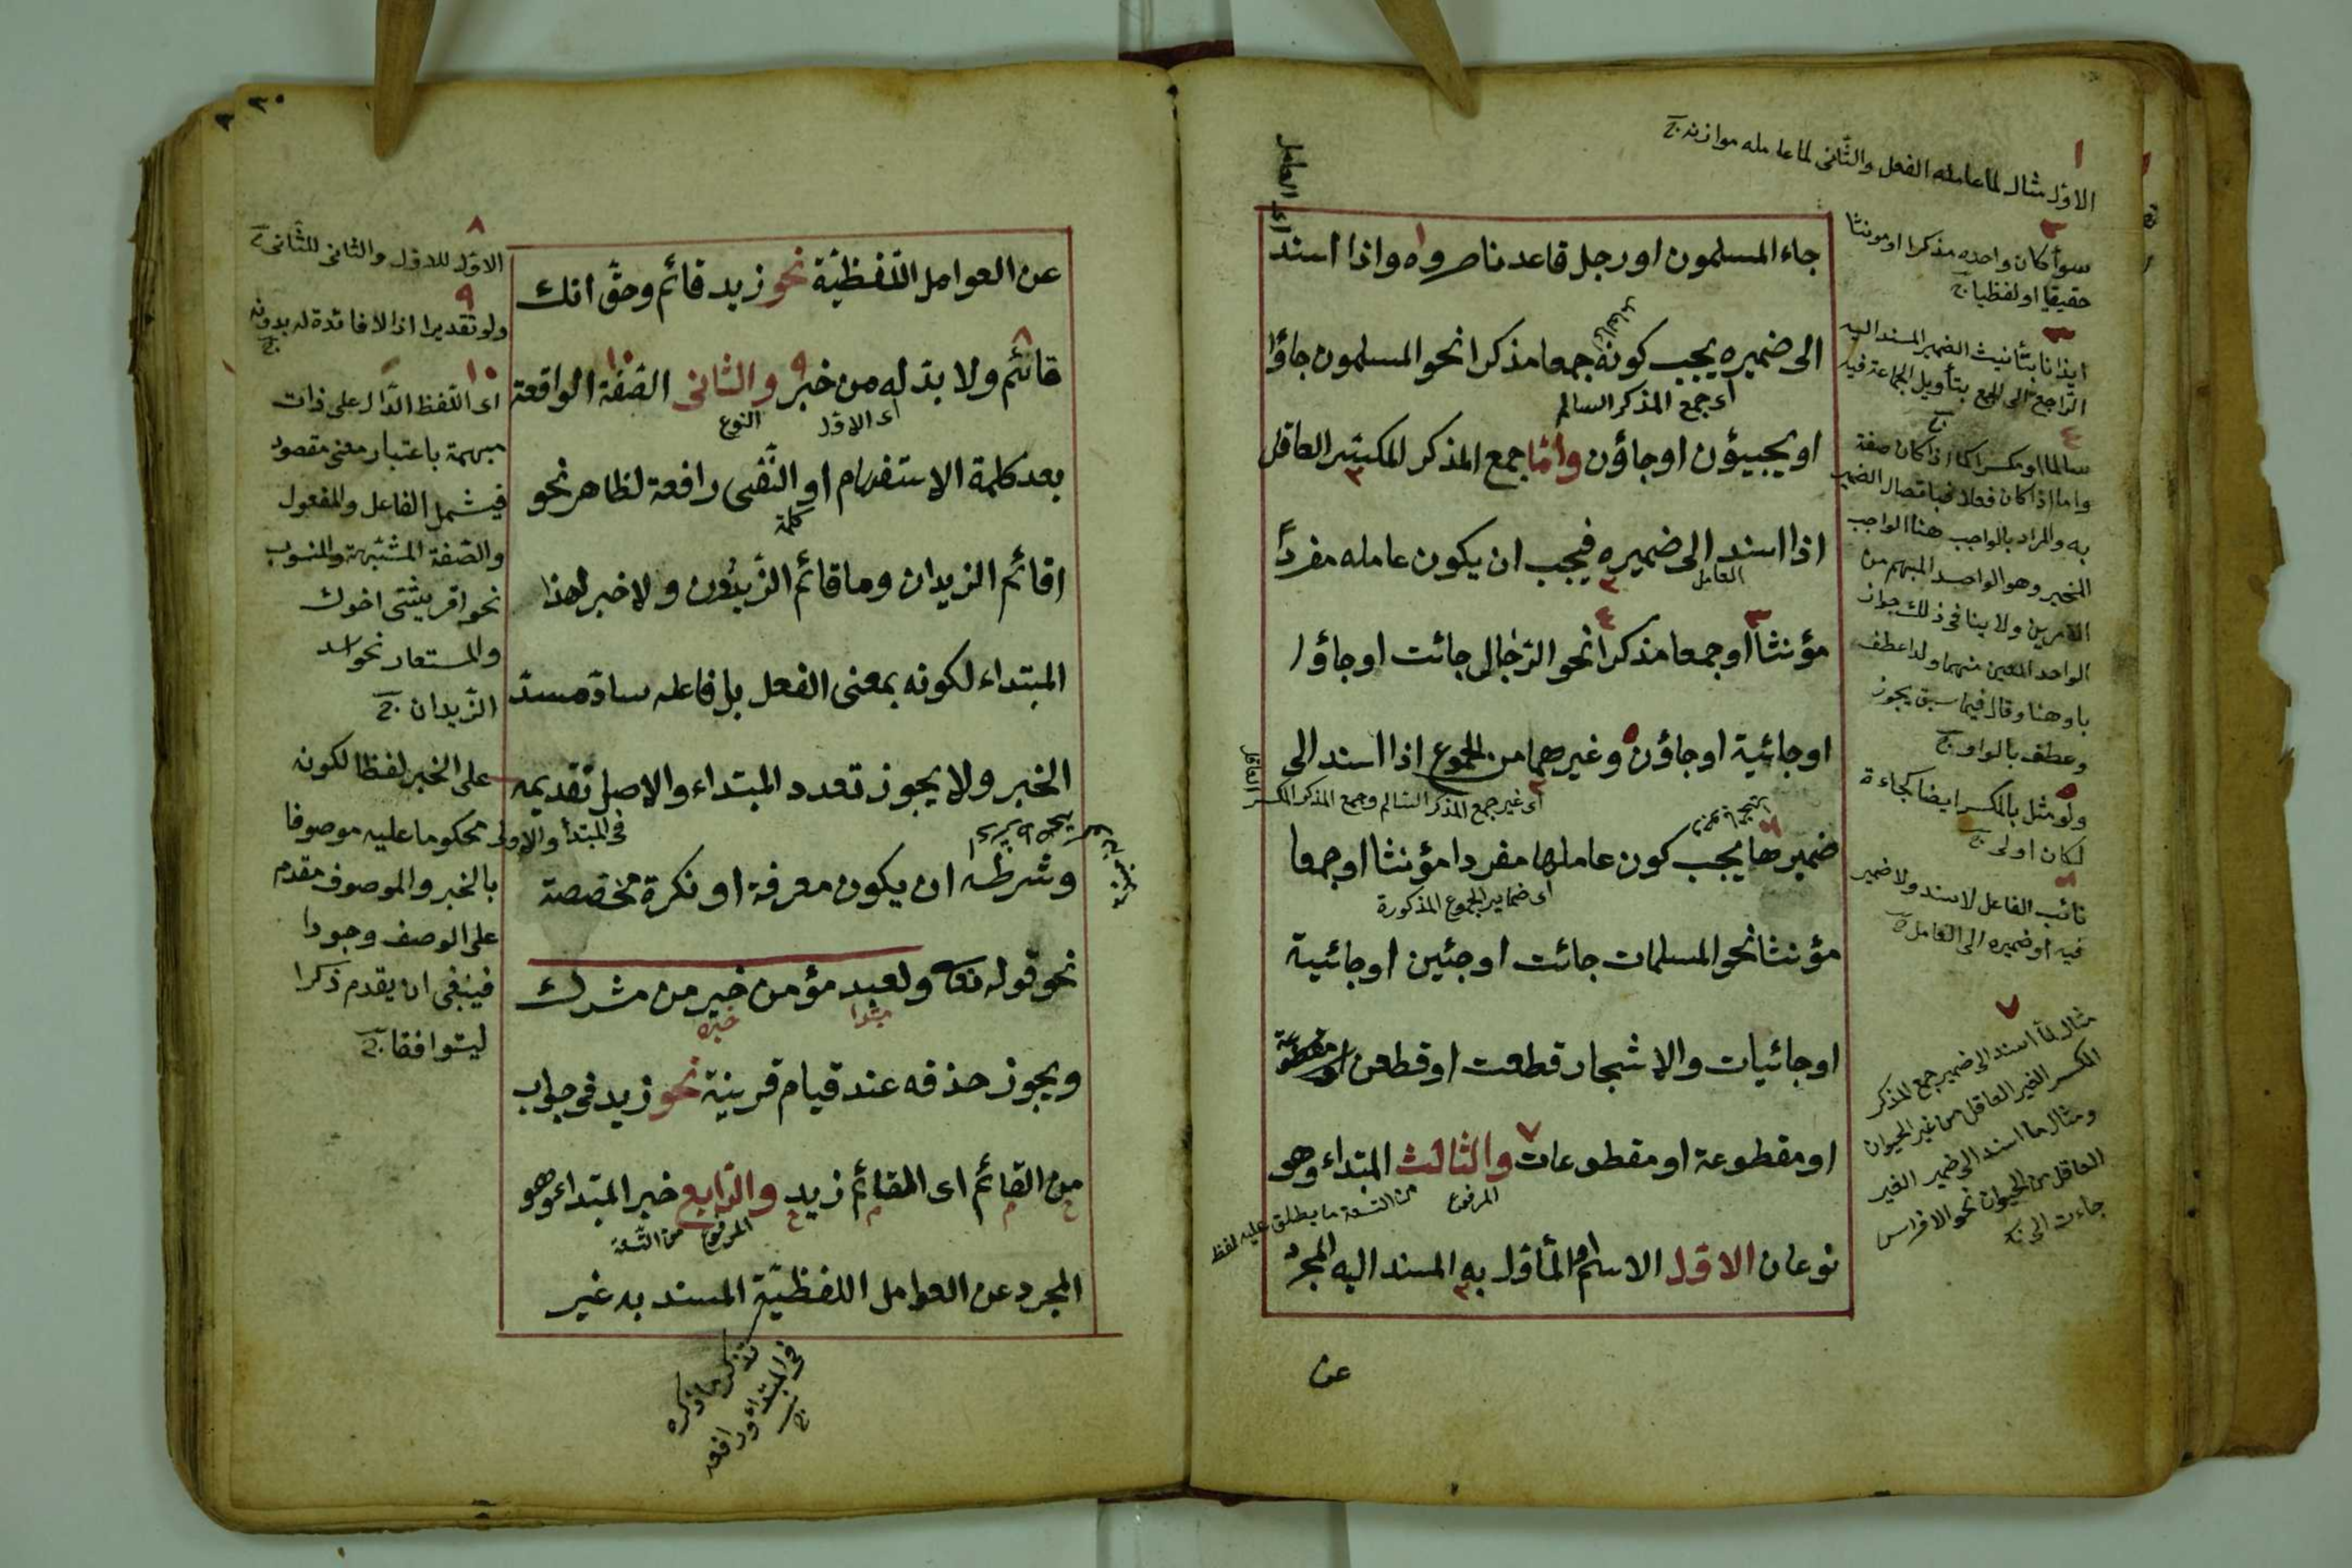 الاول مثال لما عامله الفعل والثانى لما عامله موازنه
جاء المسلمون او رجل قاعد ناصروه واذا اسند
الى ضميره يجب كونه جمعا مذكرا نحو المسلمون جاؤا
اى جمع المذكر السالم
او يجيئون او جاؤن واما جمع المذكر المكسر العاقل
اذا اسند الى ضميره فيجب ان يكون عامله مفردا
العامل
مؤنثا او جمعا مذكرا نحو الرجال جائت او جاؤا
او جائية او جاؤن وغيرهما من الجموع اذا اسند الى
اى غير جمع المذكر السالم وجمع المذكر المكسر العاقل
ضميرها يجب كون عاملها مفردا مؤنثا او جمعا
اى ضمایر الجموع المذكورة
مؤنثا نحو المسلمات جائت او جئين او جائية
او جائيات والاشجار قطعت او قطعن
او مقطوعة او مقطوعات والثالث المبتداء وهو
المرفوع
من التسعة ما يطلق عليه لفظ
نوعان الاول الاسم او المأول به المسند اليه المجرد
عن
اى العامل
٢
سوأ كان واحده مذكرا او مونثا
حقيقيا او لفظيا
٣
ايذانا بتأنيث الضمير المسند اليه
الراجع الى الجمع بتأويل الجماعة فيه
٤
سالما او مكسرا كما اذا كان صفة
واما اذا كان فعلا فباتصال الضمير
به والمراد بالواجب هنا الواجب
المخير وهو الواحد المبهم من
الامرين ولا ينافى ذلك جواز
الواحد المعين منهما ولذا عطف
باو هنا وقال فيما سبق يجوز
وعطف بالواو
٥
ولو مثل بالمكسر ايضا كجاءة
لكان اولى
٦
نائب الفاعل لاسند ولا ضمير
فيه او ضميره الى العامل
٧
مثال لما اسند الى ضمير جمع المذكر
المكسر الغير العاقل من غير الحيوان
ومثال ما اسند الى ضمير الغير
العاقل من الحيوان نحو الافراس
جاءت الى
٣٠
عن العوامل اللفظية نحو زيد قائم وحق انك
قائم ولا بد له من خبر والثانى الصفة الواقعة
اى الاول
النوع
بعد كلمة الاستفهام او النفى رافعة لظاهر نحو
كلمة
اقائم الزيدان وما قائم الزيدون ولا خبر لهذا
المبتداء لكونه بمعنى الفعل بل فاعله ساد مسد
الخبر ولا يجوز تعدد المبتداء والاصل تقديمه
وشرطه ان يكون معرفة او نكرة مخصصة
نحو قوله تعا ولعبد مؤمن خير من مشرك
مبتدا
خبره
ويجوز حذفه عند قيام قرينة نحو زيد فى جواب
من القائم اى القائم زيد والرابع خبر المبتداء وهو
المرفوع
من التسعة
المجرد عن العوامل اللفظية المسند به غير
تذكر ما ذكره
فى المبتداء ورافعه
٨
الاول للاول والثانى للثانى
٩
ولو تقديرا اذ لا فائدة له بدونه
١٠
اى اللفظ الدال على ذات
مبهمة باعتبار معنى مقصود
فيشمل الفاعل والمفعول
والصفة المشبهة والمنسوب
نحو اقريشى اخوك
والمستعار نحو اسد
الزيدان
على الخبر لفظا لكونه
محكوما عليه موصوفا
بالخبر والموصوف مقدم
على الوصف وجودا
فينبغى ان يقدم ذكرا
ليتوافقا